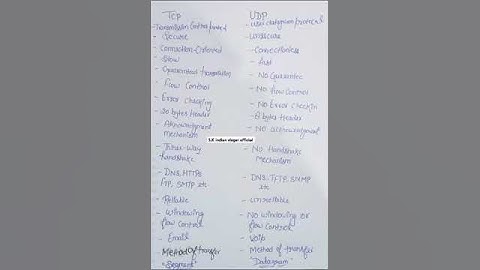 TCP
- Transmission Control protocol
- Secure
- Connection-Oriented
- Slow
- Guaranteed transmission
- Flow Control
- Error Checking
- 20 bytes header
- Acknowledgment
mechanism
- Three-way
handshake
- DNS, HTTPS
FTP, SMTP etc
- Reliable
- Windowing
flow control
- Email
Method of transfer
"Segment"
UDP
- User datagram protocol
- Unsecure
- Connectionless
- fast
- No Guarantee
- No flow Control
- No Error Checkin
- 8 bytes header
- No acknowledgment
- No Handshake
Mechanism
- DNS, TFTP, SNMP
etc
- Unreliable
- No windowing or
flow control
- VOIP
- Method of transfer
"Datagram"
S.K indian vloger official